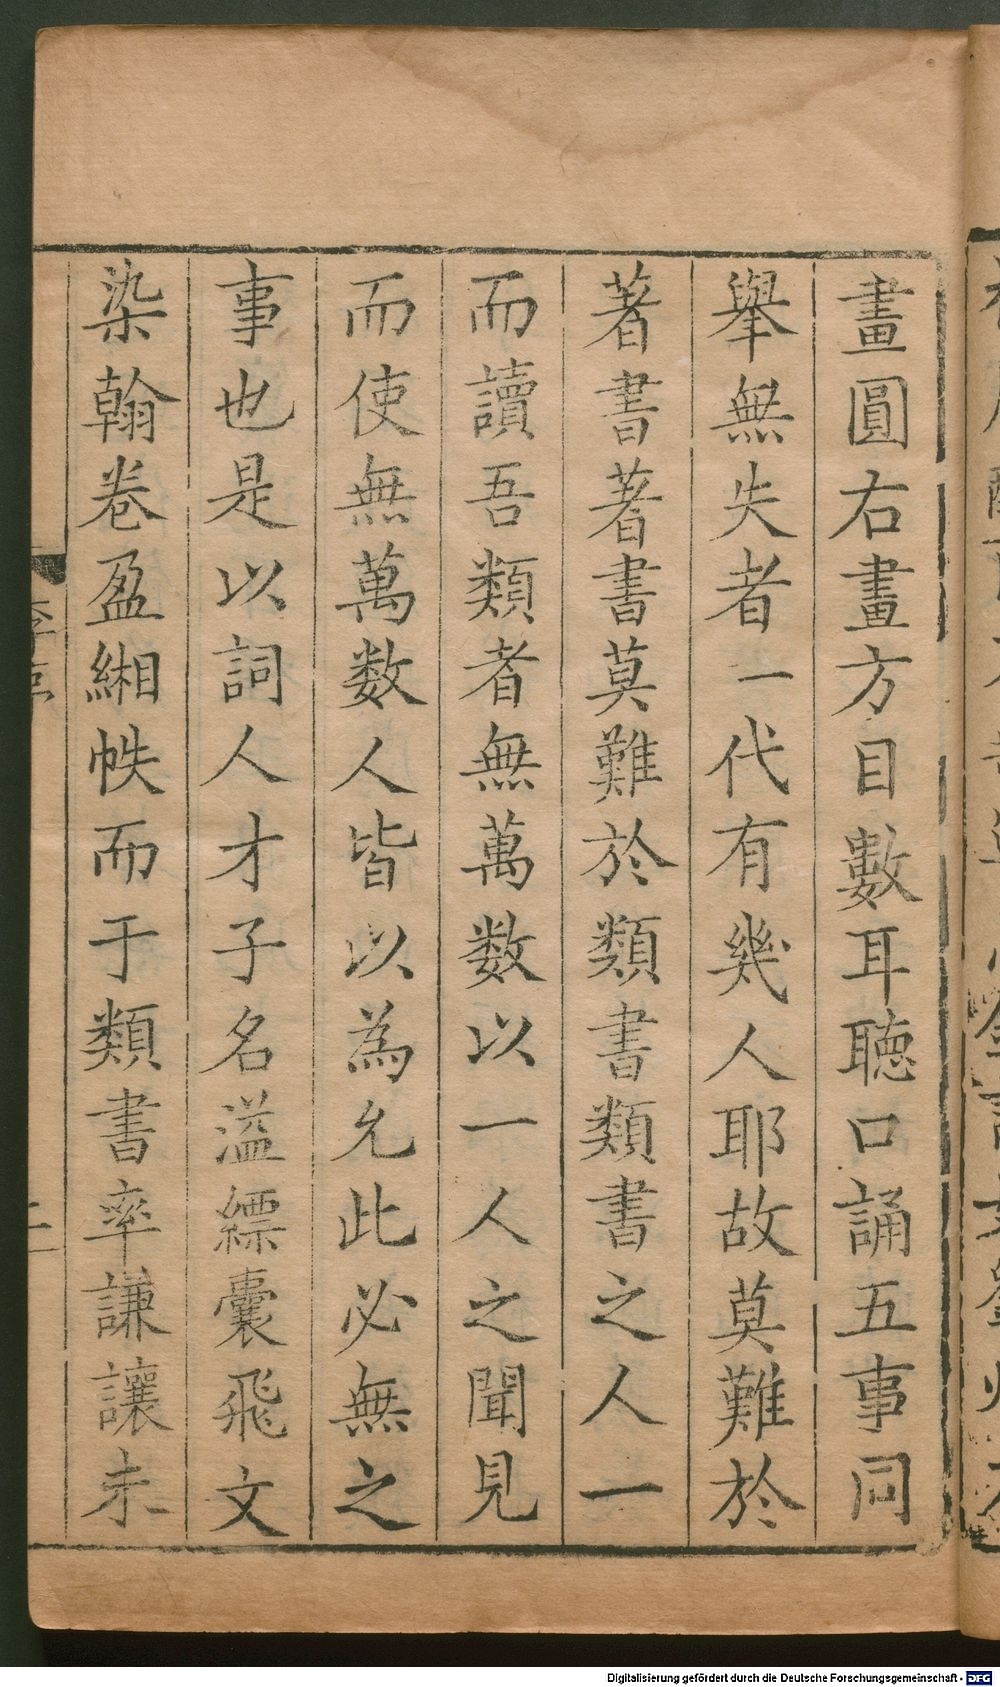 畫圓右畫方目數耳聴口誦五事同
舉無失者一代有幾人耶故莫難於
著書著書莫難於類書類書之人一
而讀吾類者無萬数以一人之聞見
而使無萬数人皆以為允此必無之
事也是以詞人才子名溢縹囊飛文
染翰卷盈緗帙而于類書率謙讓未
Digitalisierung gefördert durch die Deutsche Forschungsgemeinschaft - DFG